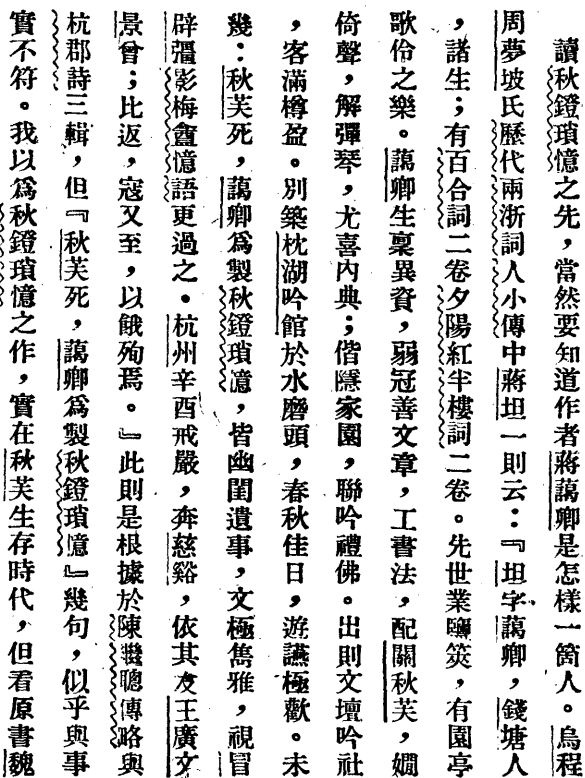 讀秋鐙瑣憶之先，當然要知道作者蔣藹卿是怎樣一箇人。烏程
周夢坡氏歷代兩浙詞人小傳中蔣坦一則云：『坦字藹卿，錢塘人
，諸生；有百合詞二卷夕陽紅半樓詞二卷。先世業鹽筴，有園亭
歌伶之樂。藹卿生稟異資，弱冠善文章，工書法，配關秋芙，嫺
倚聲，解彈琴，尤喜內典；偕隱家園，聯吟禮佛。出則文壇吟社
，客滿樽盈。別築枕湖吟館於水磨頭，春秋佳日，遊讌極歡。未
幾：秋芙死，藹卿爲製秋鐙瑣憶，皆幽閨遺事，文極雋雅，視冒
辟彊影梅盦憶語更過之。杭州辛酉戒嚴，奔慈谿，依其友王廣文
景曾；比返，寇又至，以餓殉焉。』此則是根據於陳聰傳略與
杭郡詩三輯，但『秋芙死，藹卿爲製秋鐙瑣憶』幾句，似乎與事
實不符。我以爲秋鐙瑣憶之作，實在秋芙生存時代，但看原書魏